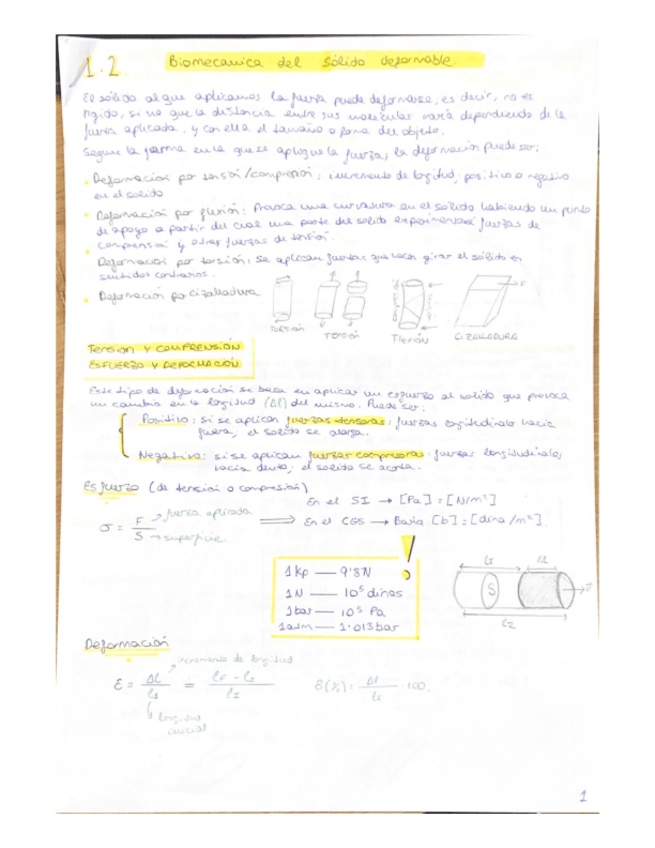 1.2 Biomecanica del sólido deformable.
El sólido al que aplicamos la fuerza puede deformarse, es decir, no es
rígido, si no que la distancia entre sus moleculas varía dependiendo de la
fuerza aplicada, y con ella el tamaño o forma del objeto.
Según la forma en la que se aplique la fuerza, la deformación puede ser:
Deformación por tensión/comprensión: incremento de longitud, positivo o negativo
en el solido
Deformación por flexión: Provoca una curvatura en el solido habiendo un punto
de apoyo a partir del cual una parte del solido experimentará fuerzas de
comprensión y otras fuerzas de tensión.
Deformación por torsión: se aplican fuerzas que hacen girar el sólido en
sentidos contrarios.
Deformación por cizalladura
F
TORSIÓN
TENSIÓN
FLEXIÓN
CIZALLADURA
TENSION Y COMPRENSIÓN
ESFUERZO Y DEFORMACIÓN
Este tipo de deformación se basa en aplicar un esfuerzo al solido que provoca
un cambio en la longitud (Δl) del mismo. Puede ser:
Positivo: si se aplican fuerzas tensoras: fuerzas longitudinales hacia
fuera, el solido se alarga.
Negativo: si se aplican fuerzas compresoras: fuerzas longitudinales
hacia dentro, el solido se acorta.
Esfuerzo (de tensión o compresión)
En el SI → [Pa] = [N/m²]
σ = F/S
fuerza aplicada
superficie
⟹ En el CGS → Baria [b] = [dina/m²]
!
1 Kp — 9'8N
1N — 10⁵ dinas
1bar — 10⁵ Pa
1atm — 1'013bar
Δl
S
Deformación
incremento de longitud
ε = Δl/l_I = (l_F - l_I)/l_I
ε(%) = Δl/l_I · 100.
longitud
inicial
1